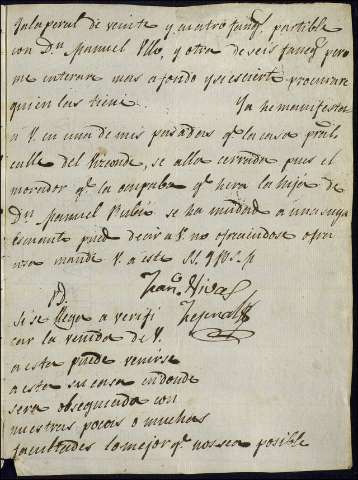 de veinte y cuatro fang.s partible
con D.n Manuel Ullo, y otra de seis faneg.s pero
me interare mas afondo y si es cierto procurare
quien las tiene. Ya he manifestar
a V. en una de mis pasadas q.e la casa pral.
calle del Vizconde, se alla cerrada pues el
morador q.e la ocupaba q.e hera la hija de
D.n Manuel Rubin se ha mudad a una suya
puede decir a V. no ofreciendose otra
mande V. a este S. S. q. B. S.
Fran.co Rivas
P.D.
Si se llega a verifi
car la venida de V.
a esta puede venirse
a esta su casa endonde
sera obsequiada con
nuestras pocas o muchas
facultades lo mejor q.e nos sea posible